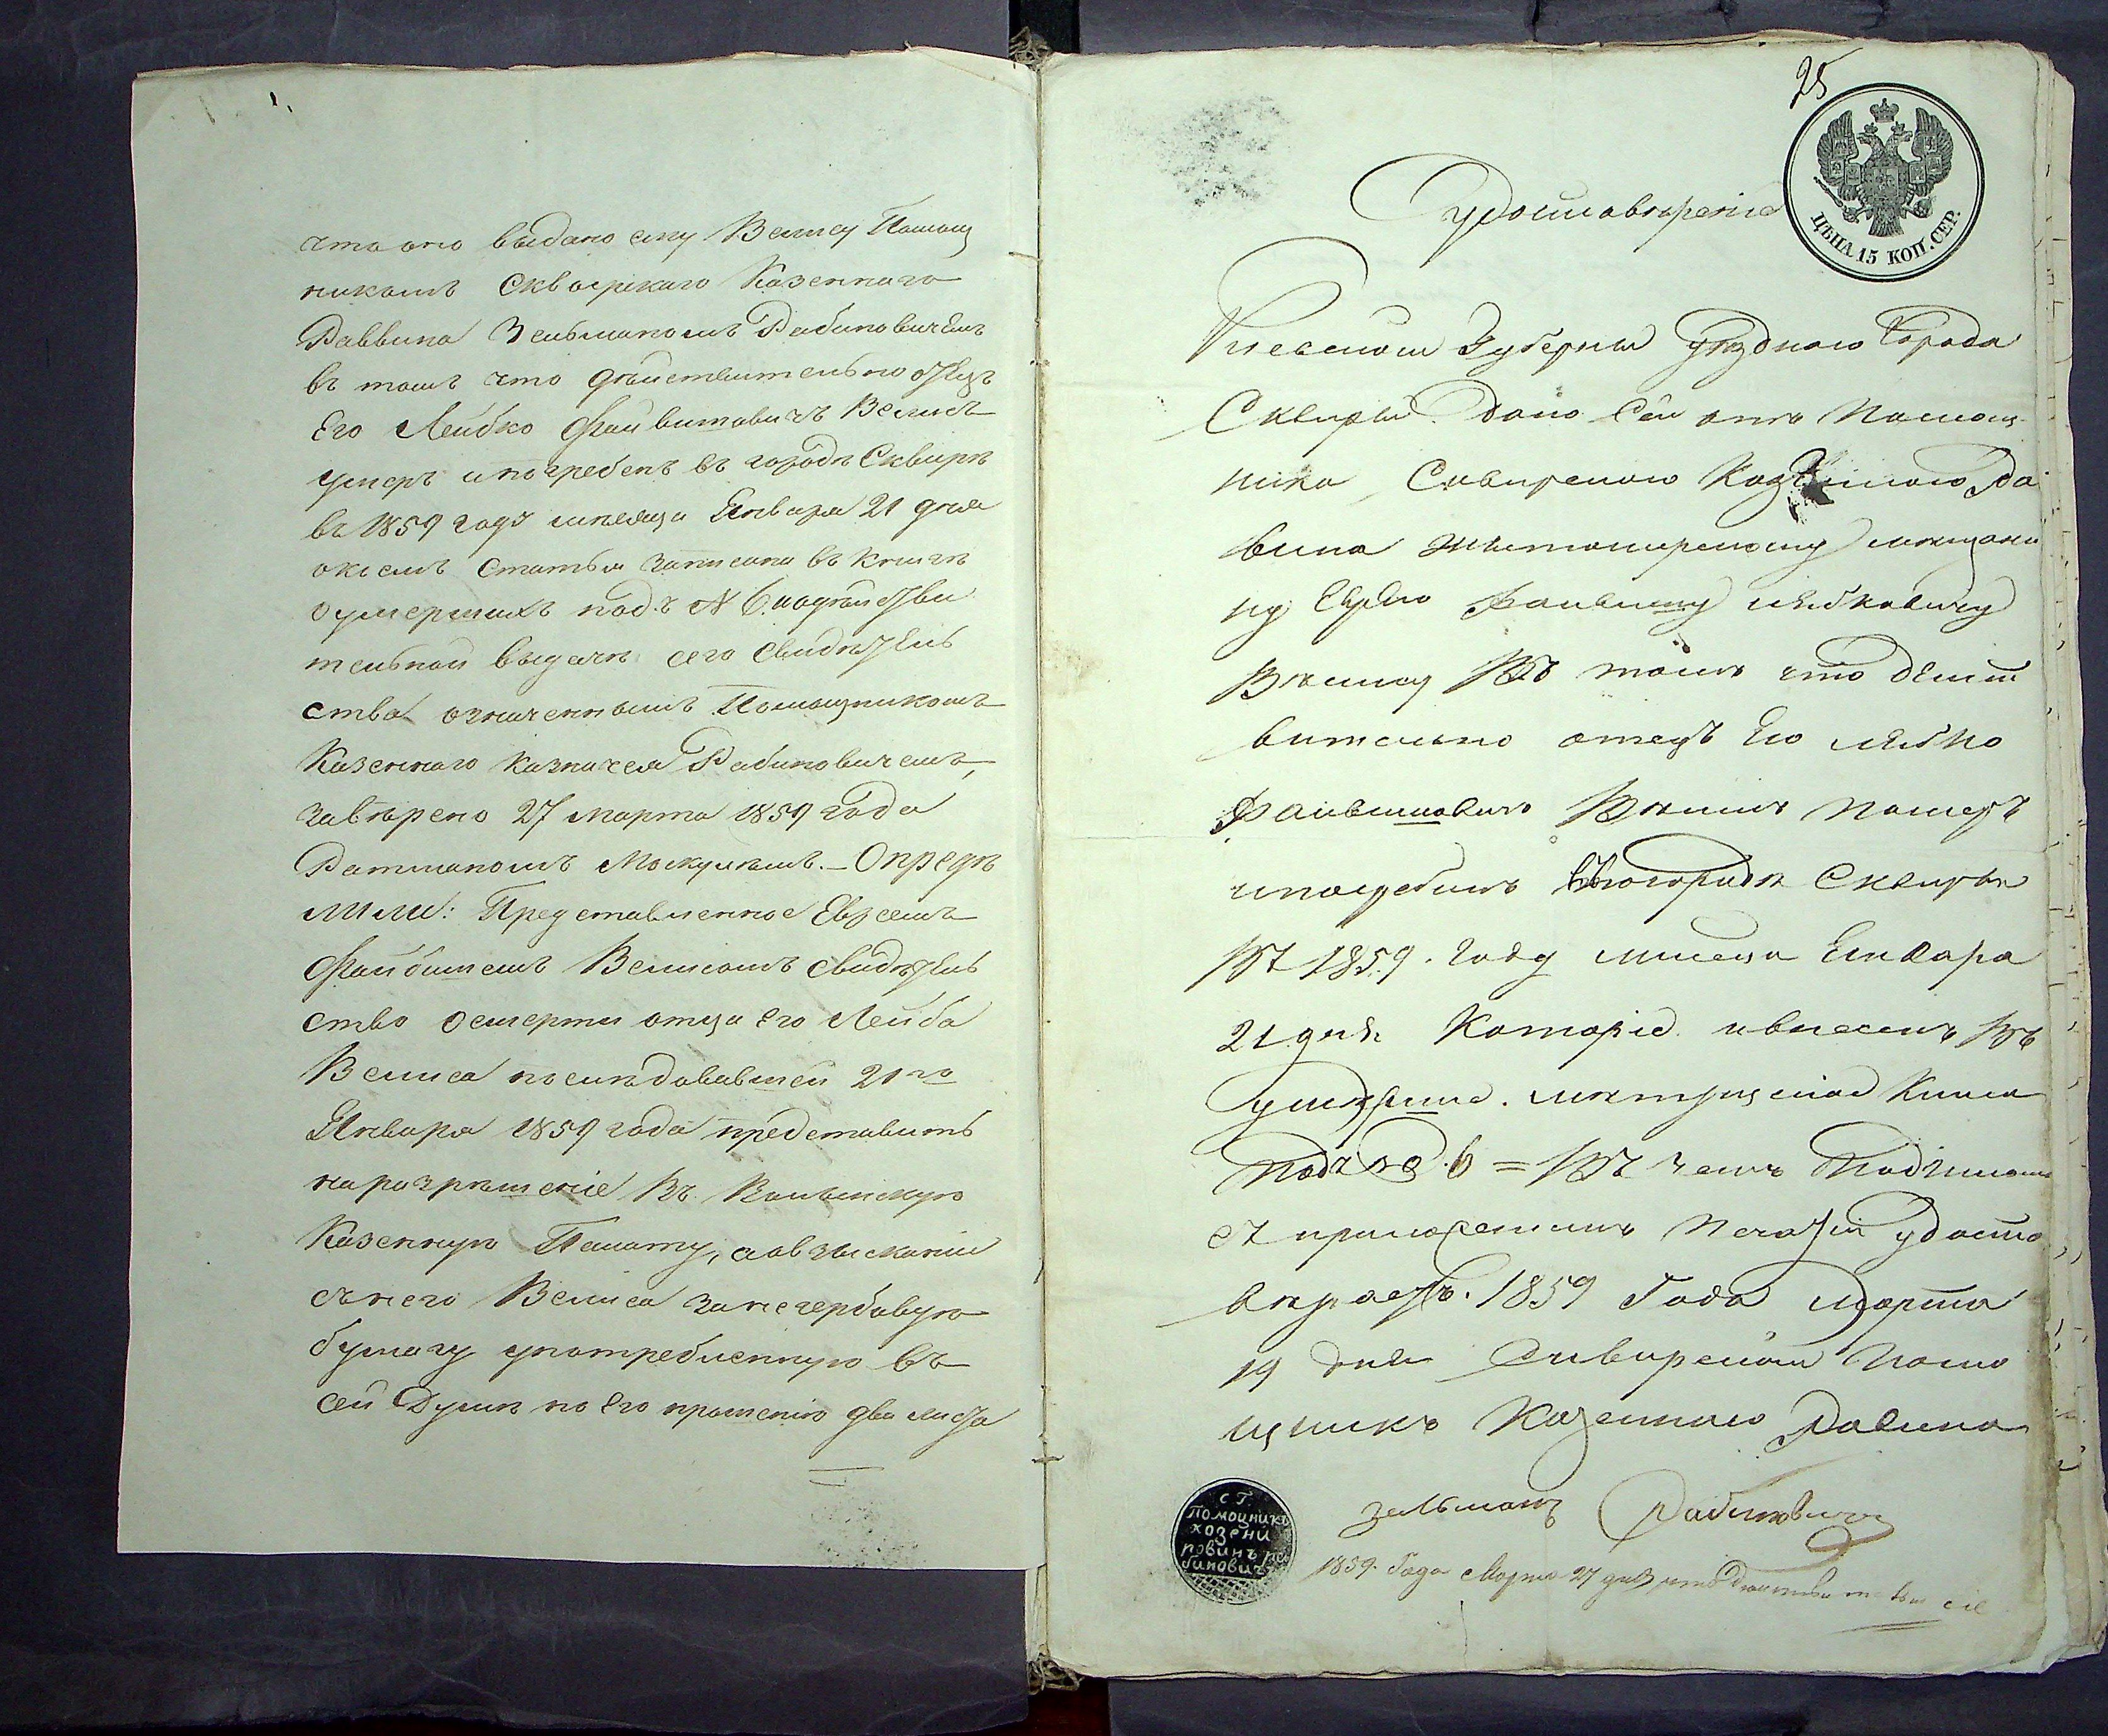 что оно выдано ему Велису Помощ
никомъ Сквирскаго Казеннаго
Раввина Зельманомъ Рабиновичемъ
въ томъ что действительно отецъ
Его Лейбко Файвишовичъ Велисъ
умеръ и погребенъ въ городѣ Сквирѣ
въ 1859 году мѣсяца Января 21 дня
о чемъ статья записана въ книгѣ
о умершихъ подъ № 6.
тельной выдачѣ сего свидѣтель
ства означеннымъ Помощникомъ
Казеннаго казначея Рабиновичемъ,
завѣрено 27 марта 1859 года
Ратманомъ – Опредѣ
лили: Представленное Евреемъ
Файбишемъ Велисомъ свидѣтель
ство о смерти отца его Лейба
Велиса послѣдовавшей 21го
Января 1859 года представить
на разрѣшеніе въ Волынскую
Казенную Палату, а о взысканіи
съ него Велиса за негербовую
бумагу употребленную въ
сей Думѣ по его прошенію два листа
25
ЦѢНА 15 КОП. СЕР.
Удостовѣреніе
Киевской Губерніи уѣздного Города
Сквиры. Дано Сей отъ Помощ
ника Сквирского Казенного Ра
вина Житомирскому мещани
ну Еврею Фаивишу лейбковичу
Велису Въ томъ что Дейст
вительно отецъ Его лейбко
Фаивишовичъ Велисъ Померъ
и погребинъ въ городѣ Сквиры
Въ 1859. Году мисеца Енвара
21 дня Которіе и внесенъ Въ
умерше. метрицское Книга
Подъ № 6 = Въ чемъ Подписом
съ приложениемъ Печатій удосто
веряетъ. 1859 Года Марта
19 дня Сквирскій Помо
щникъ Казенного Равина
зелманъ Рабиновичъ
С Г.
помощникъ
козени
ровинъ ра
биновичъ
1859. Года Марта 27 дня что